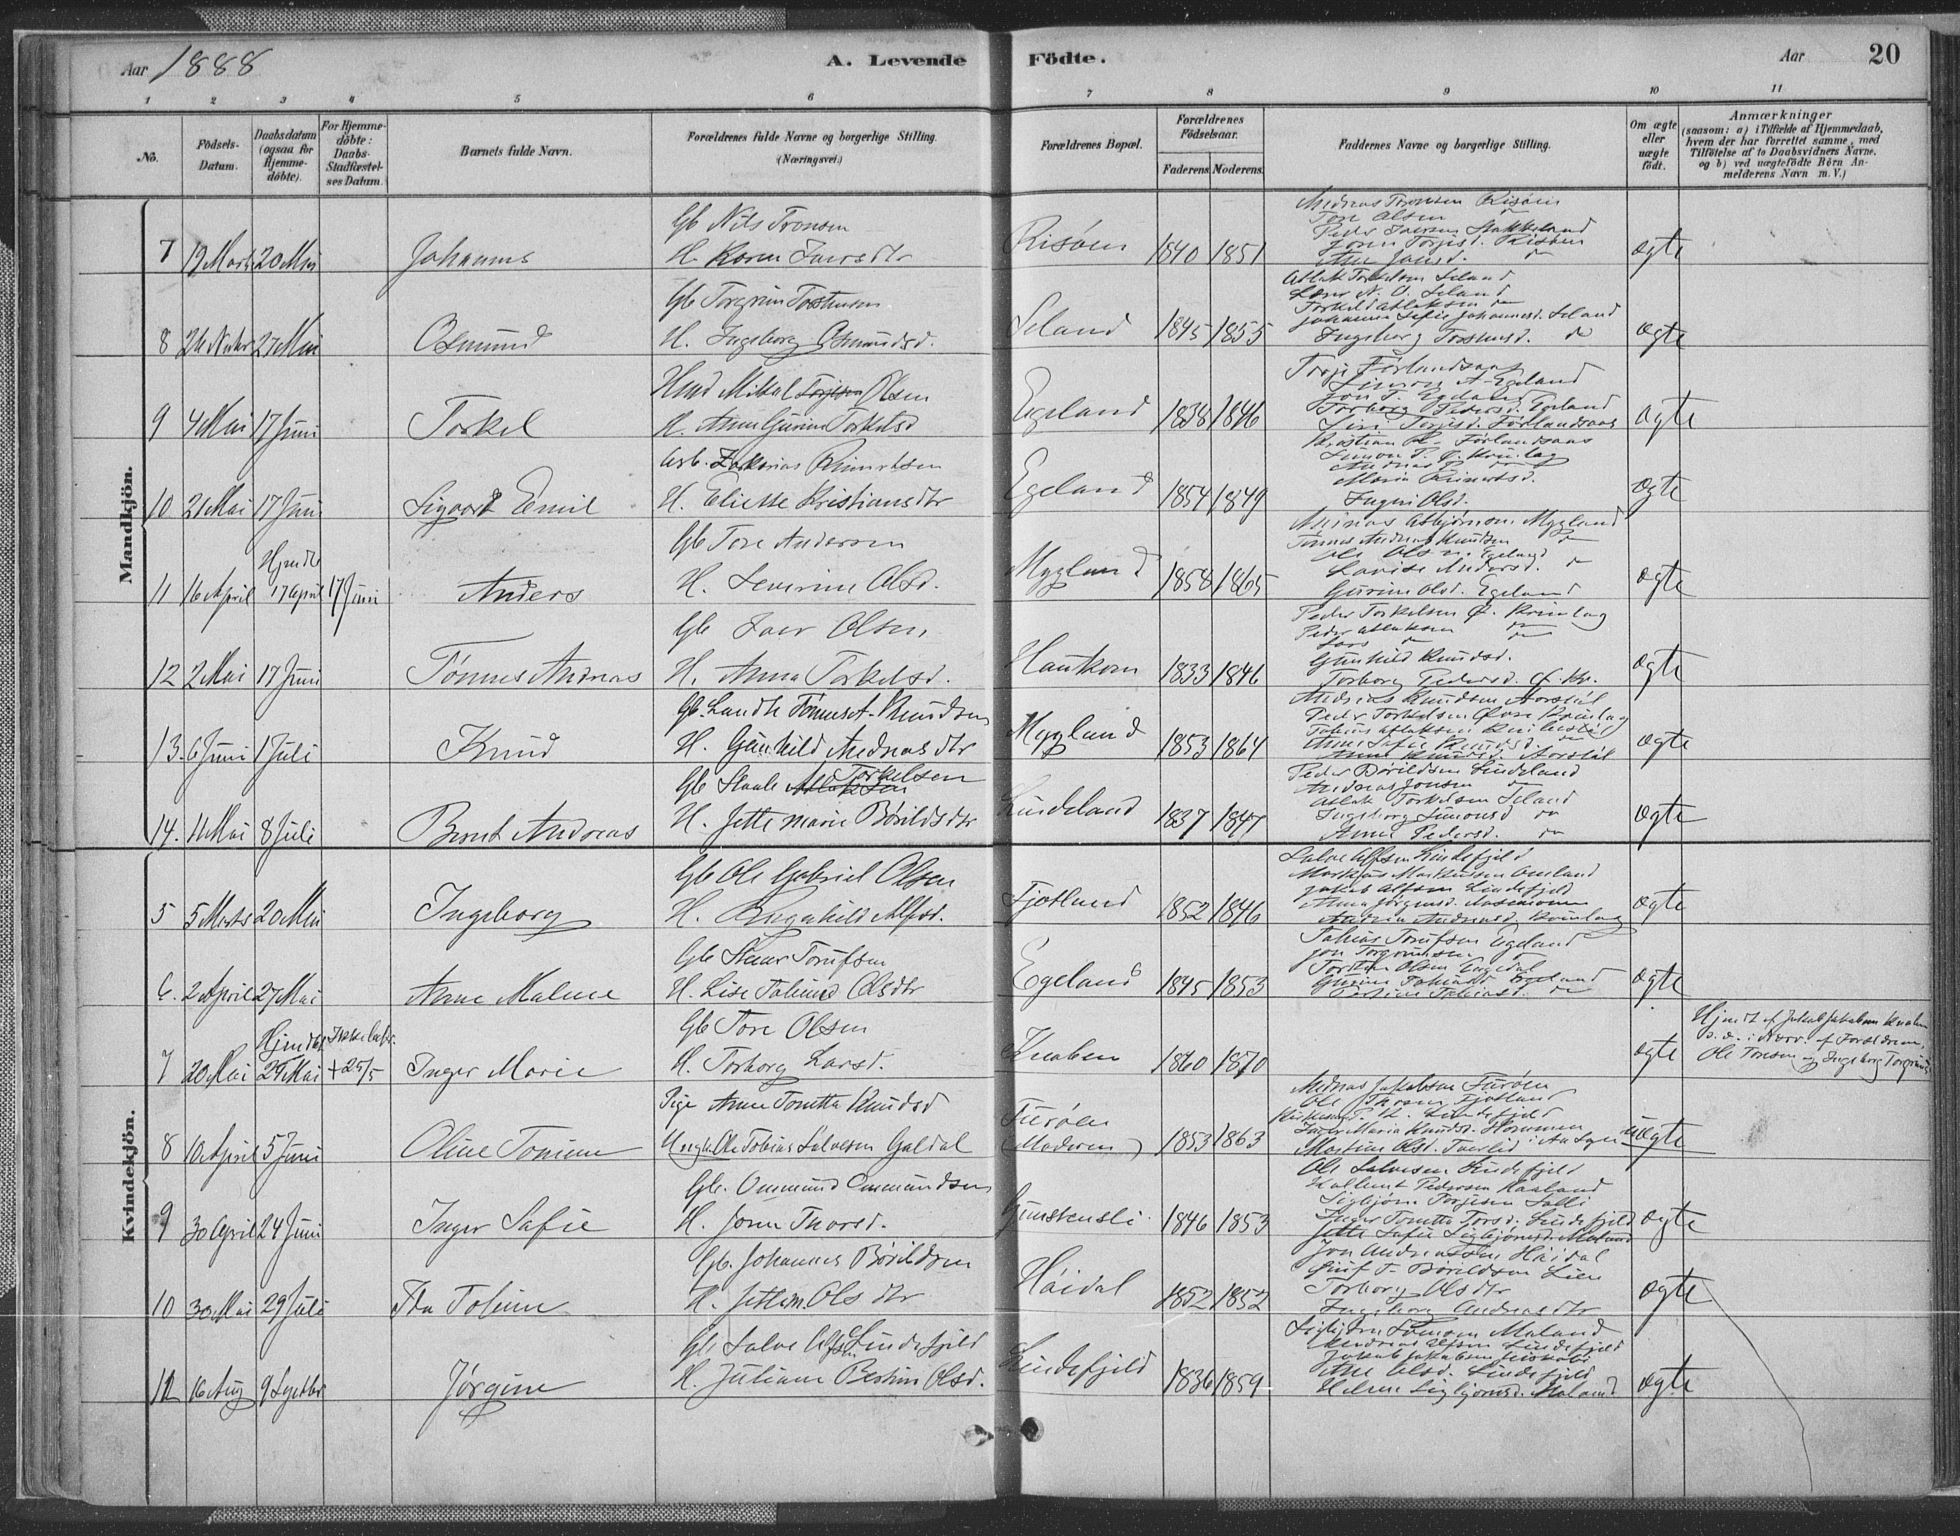 Aar 1888
A. Levende
Födte.
Aar
20
1 2 3 4 5 6 7 8 9 10 11
No.
Födsels-Datum.
Daabsdatum (ogsaa for Hjemme-döbte).
For Hjemme-döbte: Daabs-Stadfæstel-ses Datum.
Barnets fulde Navn.
Forældrenes fulde Navne og borgerlige Stilling.
(Næringsvei.)
Forældrenes Bopæl.
Forældrenes Födselsaar.
Faderens. Moderens.
Faddernes Navne og borgerlige Stilling.
Om ægte eller uægte födt.
Anmærkninger
(saasom: a) i Tilfælde af Hjemmedaab, hvem der har forrettet samme, med Tilföielse af to Daabsvidners Navne, og b) ved uægtefödte Börn Anmelderens Navn m. V.)
Mandkjön.
7 19 Marts 20 Mai Johannes
Gb Nils Tronsen
H. Karen Iversdtr
Risöen 1840 1851
Andreas Tronsen Risöen
Tore Olsen
Peder Iversen Stakkeland
Joren Torjesd. Risöen
ægte
8 27 Mai Osmund
Gb Torgrim Torstensen
H. Ingeborg Osmundsd.
Seland 1845 1855
Atlak Torkelsen Seland
Torkild Atlaksen do
Johanna Sofie Johannesd. Seland
Ingeborg Torstensd. do
ægte
9 4 Mai 17 Juni Torkel
Hmd Mikal Torjesen Olsen
H. Anne Gurine Torkelsd
Egeland 1838 1846
Torje Förlandsaas
Simon A. Egeland
Jon T. Egeland
Torborg Pedersd. Egeland
Siri Torjesd. Förlandsaas
ægte
10 21 Mai 17 Juni Sigvart Emil
Arb. Zakarias Reinertsen
H. Eliesse Kristiansdtr
Egeland 1854 1849
Kristian R. Förlandsaas
Simon P. Ö. Kvinlog
Andreas P. do
Maria Reinertsd.
Ingeri Olsd.
ægte
11 16 April Hjmdbt 17 April 17 Juni Anders
Gb Tore Andersen
H. Severine Olsd.
Myglund 1858 1865
Andreas Asbjörnsen Mygland
Tönnes Andreas Knudsen do
Ole Olsen Egeland
Lovise Andersd. do
Gurine Olsd. Egeland
ægte
12 2 Mai 17 Juni Tönnes Andreas
Gb Iver Olsen
H. Anna Torkelsd.
Haukom 1833 1846
Peder Torkelsen Ö. Kvinlog
Peder Atlaksen do
Lars do
Gunhild Knudsd.
Torborg Pedersd. Ö. Kv.
ægte
13. 6 Juni 1 Juli Knud
Gb. Landh. Tönnes A. Knudsen
H. Gunhild Andreasdtr
Myglund 1853 1864
Andreas Knudsen Aarstöl
Peder Torkelsen Övre Kvinlog
Anne Sofie Knudsd. do
Anne Knudsd. Aarstöl
ægte
14. 11 Mai 8 Juli Bernt Andreas
Gb Staale Atlaksen Torkelsen
H. Jette Marie Börildsdtr
Lindeland 1837 1847
Peder Börildsen Lindeland
Andreas Jonsen do
Atlak Torkelsen Seland
Ingeborg Simonsd do
Anne Pedersd. do
ægte
Kvindekjön.
5 5 Marts 20 Mai Ingeborg
Gb Ole Gabriel Olsen
H. Ragnhild Alfsd.
Fjotland 1852 1846
Salve Alfsen Lindefjeld
Markus Markussen Omland
Jakob Alfsen Lindefjeld
Anna Jörgensd.
Andrea Andreasd. Kvinlog
ægte
6. 2 April 27 Mai Anne Malene
Gb Steinar Torufsen
H. Lise Tobine Olsdtr
Egeland 1845 1853
Tobias Torufsen Egeland
Jon Torgrimsen do
Torsten Olsen
Gurine Tobiasd. Egeland
Tobiasd. do
ægte
7 20 Mai Hjmdbt 24 Mai Ikke +25/5 Inger Marie
Gb Tore Olsen
H. Torborg Larsd.
Knaben 1860 1870
ægte
Hjmdt af Jakob Jakobsen Knaben
p. v. i Nærv. af Forældrene,
Ole Toresen og Ingeborg Torgrimsd
8 10 April 5 Juni Oline Tomine
Pige Anne Tomtta Knudsd
Ungk. Ole Tobias Salvesen Galdal
Furöen (Moderen) 1853 1863
Andreas Jakobsen Furöen
Ole Thoresen Fjotland
Inger Maria Knudsd. Hommen
Martine Olsd.
uægte
9 30 April 24 Juni Inger Sofie
Gb. Ommund Ommundsen
H. Jonn Thorsd.
Gunstensli 1846 1853
Ole Salvesen Lindefjeld
Hallvart Pedersen Haaland
Sigbjörn Torjesen Salli
Inger Tomtta Torsd. Lindefjeld
Jette Sofie Sigbjörnsd. Moland
ægte
10 30 Mai 29 Juli Ida Tobine
Gb. Johannes Börildsen
H. Jette M Olsdtr
Höidal 1852 1852
Jon Andreassen Höidal
Börildsen Lien
Torborg Olsdtr
Ingeborg Andreasdtr
ægte
11 16 Aug 9 Septbr Jörgine
Gb Salve Alfsen Lindefjeld
H. Juliane Bertine Olsd.
Lindefjeld 1836 1859
Sigbjörn Simonsen Moland
Andreas Alfsen Lindefjeld
Jakob Jakobsen
Ane Olsd. Lindefjeld
Helene Sigbjörnsd. Moland
ægte